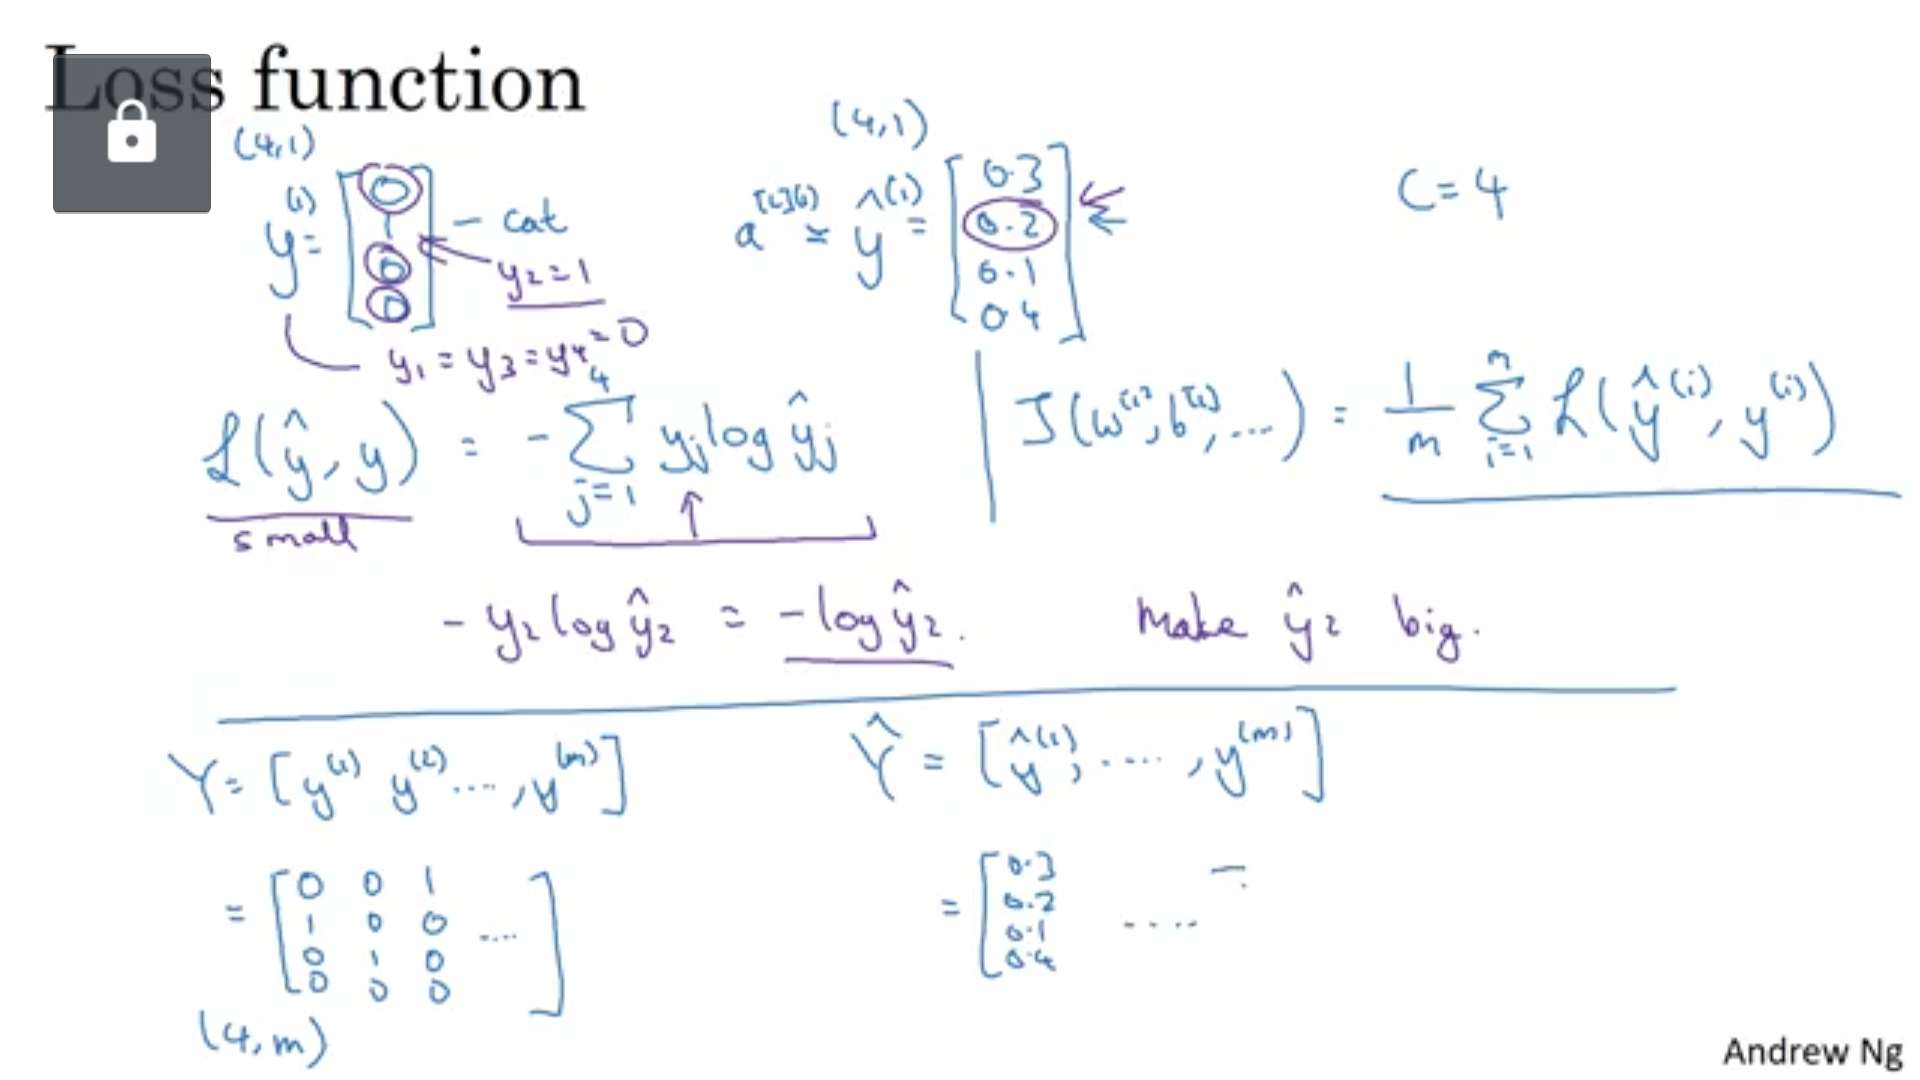 Loss function
(4,1)
y⁽¹⁾ = [0 1 0 0] - cat
y₂ = 1
y₁ = y₃ = y₄ = 0
(4,1)
a^[L](i) = ŷ⁽¹⁾ = [0.3 0.2 0.1 0.4]
C = 4
ℒ(ŷ, y) = - ∑_{j=1}^{4} yⱼ log ŷⱼ
small
J(w^[1], b^[1], ...) = 1/m ∑_{i=1}^{m} ℒ(ŷ⁽ⁱ⁾, y⁽ⁱ⁾)
- y₂ log ŷ₂ = - log ŷ₂. Make ŷ₂ big.
Y = [y⁽¹⁾ y⁽²⁾ ...., y⁽ᵐ⁾]
= [0 0 1
1 0 0 ....
0 1 0
0 0 0]
(4, m)
Ŷ = [ŷ⁽¹⁾, ...., y⁽ᵐ⁾]
= [0.3
0.2 ....
0.1
0.4
Andrew Ng